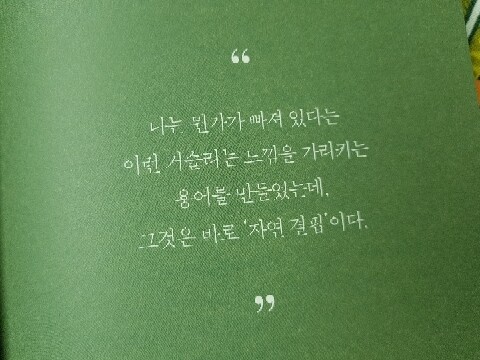 “
나는 뭔가가 빠져 있다는
이런 서글퍼는 느낌을 가리키는
용어를 만들었는데,
그것은 바로 ‘자연 결핍’이다.
”